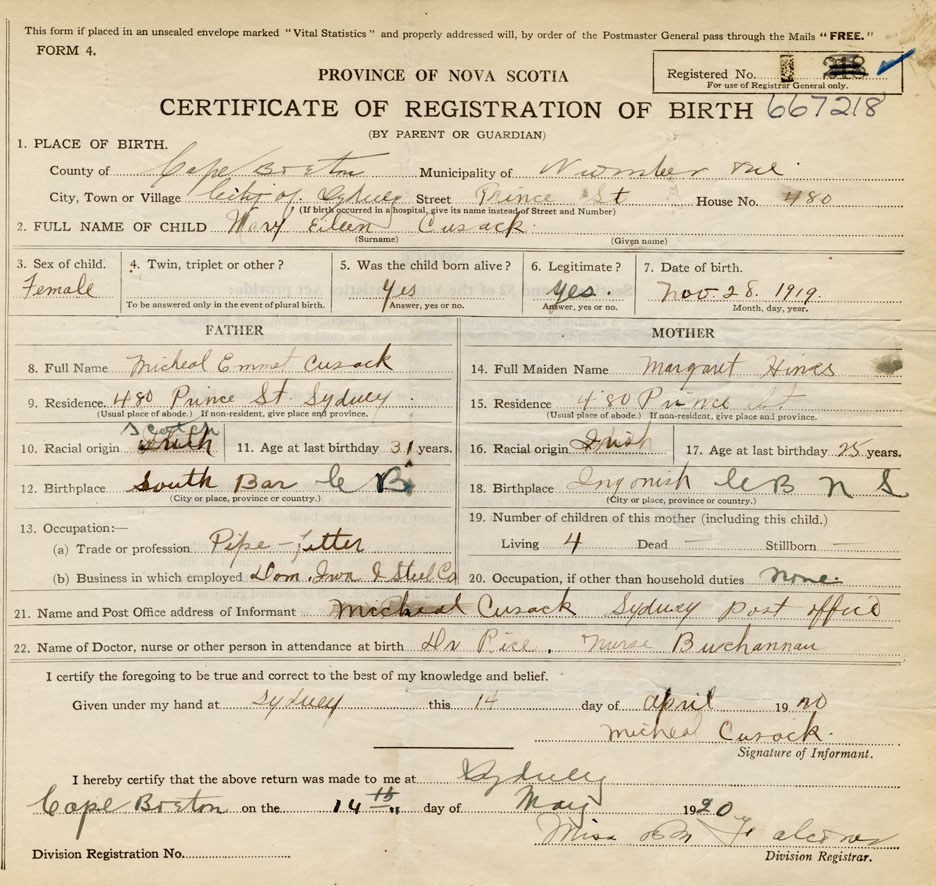 This form if placed in an unsealed envelope marked "Vital Statistics" and properly addressed will, by order of the Postmaster General pass through the Mails "FREE."
FORM 4.
PROVINCE OF NOVA SCOTIA
Registered No. 218
For use of Registrar General only.
CERTIFICATE OF REGISTRATION OF BIRTH 667218
(BY PARENT OR GUARDIAN)
1. PLACE OF BIRTH.
County of Cape Breton Municipality of
City, Town or Village City of Sydney Street Prince St House No. 480
(If birth occurred in a hospital, give its name instead of Street and Number)
2. FULL NAME OF CHILD Mary Eileen Cusack
(Surname) (Given name)
3. Sex of child. 4. Twin, triplet or other? 5. Was the child born alive? 6. Legitimate? 7. Date of birth.
Female yes yes Nov 28. 1919.
To be answered only in the event of plural birth. Answer, yes or no. Answer, yes or no. Month, day, year.
FATHER
8. Full Name Micheal Emmet Cusack
9. Residence. 480 Prince St. Sydney
(Usual place of abode.) If non-resident, give place and province.
Scotch
10. Racial origin Irish 11. Age at last birthday 31 years.
12. Birthplace South Bar C B
(City or place, province or country.)
13. Occupation:—
(a) Trade or profession Pipe-fitter
(b) Business in which employed Dom. Iron & Steel Co
MOTHER
14. Full Maiden Name Margaret Hines
15. Residence 480 Prince St
(Usual place of abode.) If non-resident, give place and province.
16. Racial origin Irish 17. Age at last birthday 25 years.
18. Birthplace Ingonish C B N S
(City or place, province or country.)
19. Number of children of this mother (including this child.)
Living 4 Dead — Stillborn —
20. Occupation, if other than household duties none.
21. Name and Post Office address of Informant Micheal Cusack Sydney Post office
22. Name of Doctor, nurse or other person in attendance at birth Dr Rice. Nurse Buchannan
I certify the foregoing to be true and correct to the best of my knowledge and belief.
Given under my hand at Sydney this 14 day of april 1920
Micheal Cusack.
Signature of Informant.
I hereby certify that the above return was made to me at Sydney
Cape Breton on the 14th day of May 1920
Miss
Division Registrar.
Division Registration No.